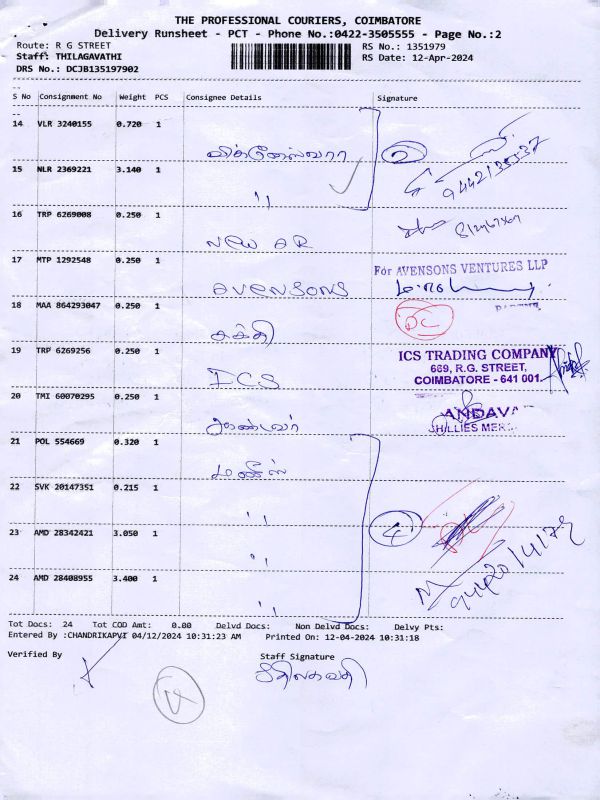 THE PROFESSIONAL COURIERS, COIMBATORE
Delivery Runsheet - PCT - Phone No.:0422-3505555 - Page No.:2
Route: R G STREET RS No.: 1351979
Staff: THILAGAVATHI RS Date: 12-Apr-2024
DRS No.: DCJB135197902
S No Consignment No Weight PCS Consignee Details Signature
14 VLR 3240155 0.720 1
விக்னேஸ்வரா 2
15 NLR 2369221 3.140 1
" 
16 TRP 6269008 0.250 1
NEW AR
17 MTP 1292548 0.250 1
For AVENSONS VENTURES LLP
AVENSONS
18 MAA 864293047 0.250 1
சக்தி DC
19 TRP 6269256 0.250 1
ICS TRADING COMPANY
669, R.G. STREET,
ICS COIMBATORE - 641 001.
20 TMI 60070295 0.250 1
ஆண்டவர் ANDAVA
21 POL 554669 0.320 1
22 SVK 20147351 0.215 1
"
23 AMD 28342421 3.050 1 4
"
24 AMD 28408955 3.400 1
"
Tot Docs: 24 Tot COD Amt: 0.00 Delvd Docs: Non Delvd Docs: Delvy Pts:
Entered By :CHANDRIKAPVI 04/12/2024 10:31:23 AM Printed On: 12-04-2024 10:31:18
Verified By Staff Signature